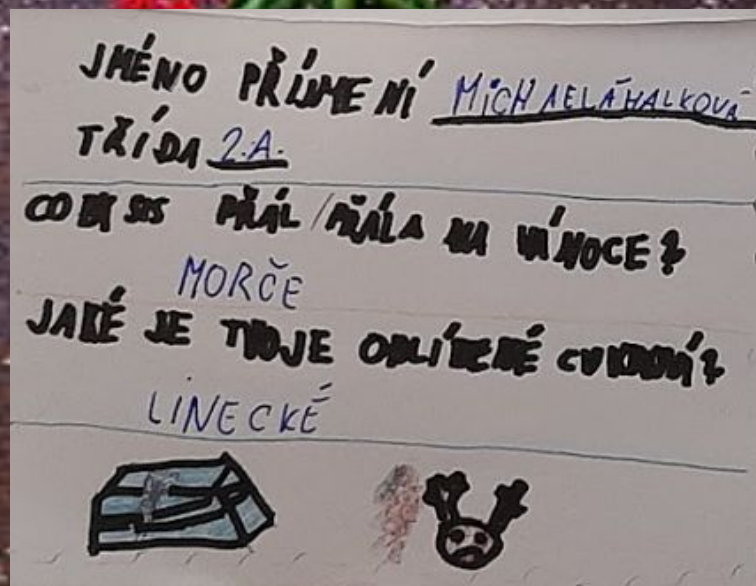 JMÉNO PŘÍJMENÍ MICHAELA HALKOVÁ
TŘÍDA 2.A.
CO BY SIS PŘÁL/PŘÁLA NA VÁNOCE?
MORČE
JAKÉ JE TVOJE OBLÍBENÉ CUKROVÍ?
LINECKÉ